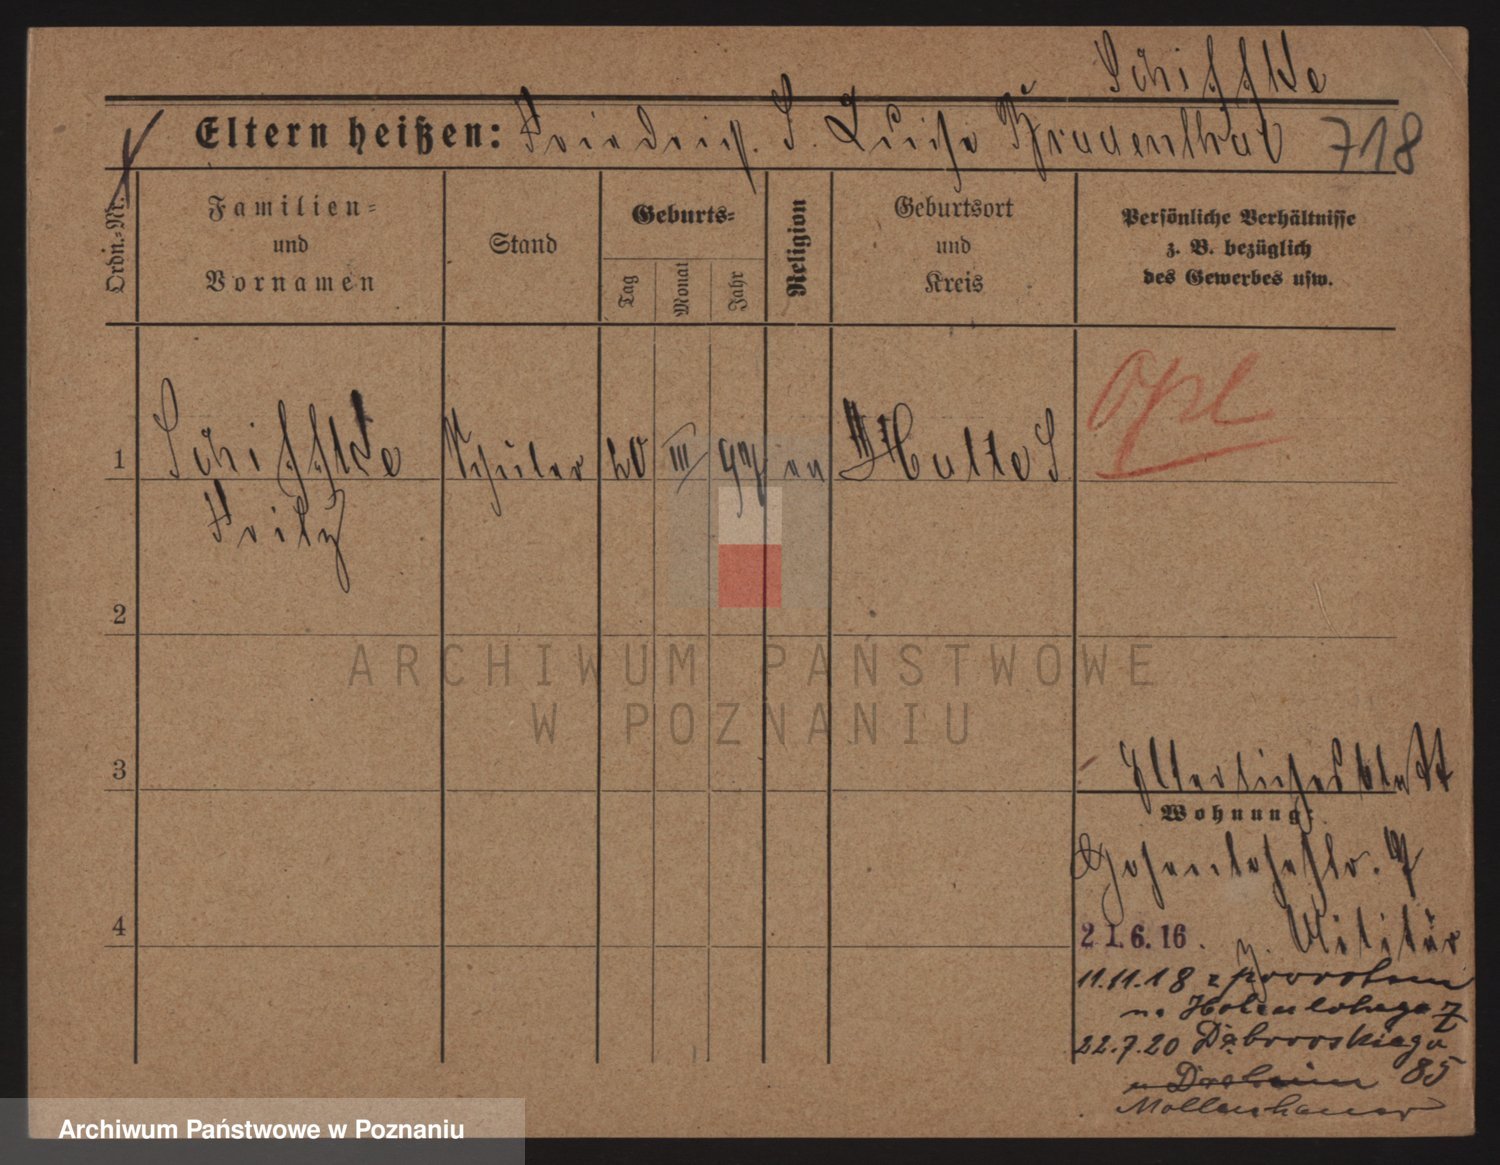 Schifftke
Eltern heißen: Friedrich S. Luise Brauenthal 718
Ordn.-Nr.
Familien-
und
Vornamen
Stand
Geburts-
Tag
Monat
Jahr
Religion
Geburtsort
und
Kreis
Persönliche Verhältnisse
z. B. bezüglich
des Gewerbes usw.
Opl
1 Schifftke Schüler 20 III 97 ev
Fritz
2
3
4
Wohnung:
Hohenlohestr. 7
21.6.16. z. Militär
11.11.18 z powrotem
n. Hohenlohego 7
22.7.20 Dąbrowskiego
85
Mollenhauer
ARCHIWUM PAŃSTWOWE
W POZNANIU
Archiwum Państwowe w Poznaniu